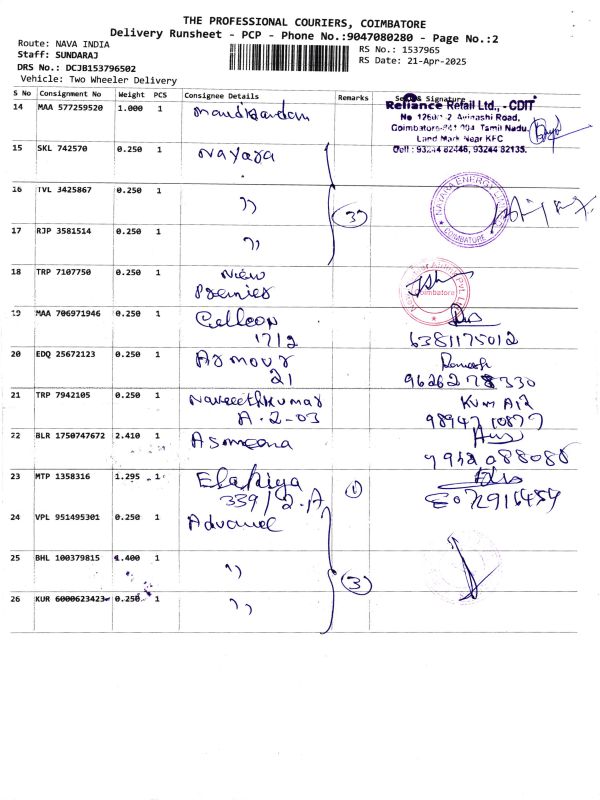 THE PROFESSIONAL COURIERS, COIMBATORE
Delivery Runsheet - PCP - Phone No.:9047080280 - Page No.:2
Route: NAVA INDIA
Staff: SUNDARAJ
DRS No.: DCJB153796502
Vehicle: Two Wheeler Delivery
RS No.: 1537965
RS Date: 21-Apr-2025
S No Consignment No Weight PCS Consignee Details Remarks Seal & Signature
14 MAA 577259520 1.000 1
Reliance Retail Ltd., - CDIT
Avinashi Road,
Coimbatore-641 004 Tamil Nadu.
Land Mark Near KFC
Cell : 93244 82446, 93244 82135.
15 SKL 742570 0.250 1 Nayara
16 TVL 3425867 0.250 1 ,, (3)
NAYARA ENERGY
COIMBATORE
17 RJP 3581514 0.250 1 ,,
18 TRP 7107750 0.250 1 New
Premier
Coimbatore
19 MAA 706971946 0.250 1 Celleon
1712
6381175012
20 EDQ 25672123 0.250 1 Armour
21
Ramesh
9626278330
21 TRP 7942105 0.250 1 Navaneethkumar
A-2-03
Kum Air
9894710877
22 BLR 1750747672 2.410 1 Asmeena
9952088088
23 MTP 1358316 1.295 1 Elakiya
339/2-A
(1)
24 VPL 951495301 0.250 1 Advance
25 BHL 100379815 1.400 1 ,, (3)
26 KUR 6000623423 0.250 1 ,,